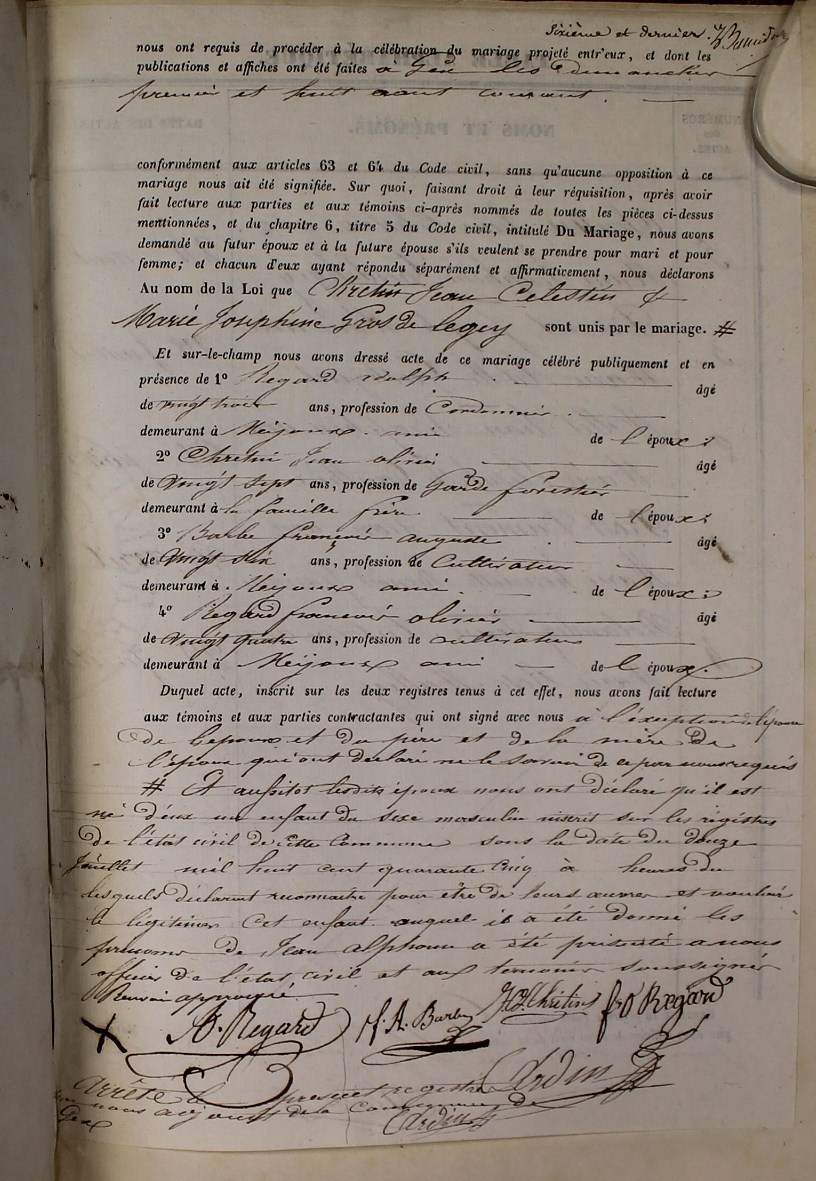 Sixième et dernier.
nous ont requis de procéder à la célébration du mariage projeté entr'eux, et dont les
publications et affiches ont été faites à Gex les dimanches
premier et huit aout courant.
conformément aux articles 63 et 64 du Code civil, sans qu'aucune opposition à ce
mariage nous ait été signifiée. Sur quoi, faisant droit à leur réquisition, après avoir
fait lecture aux parties et aux témoins ci-après nommés de toutes les pièces ci-dessus
mentionnées, et du chapitre 6, titre 5 du Code civil, intitulé Du Mariage, nous avons
demandé au futur époux et à la future épouse s'ils veulent se prendre pour mari et pour
femme; et chacun d'eux ayant répondu séparément et affirmativement, nous déclarons
Au nom de la Loi que Chretin Jean Celestin &
Marie Josephine Gros de legey sont unis par le mariage. #
Et sur-le-champ nous avons dressé acte de ce mariage célébré publiquement et en
présence de 1° Regard adolph âgé
de vingt trois ans, profession de Cordonnier
demeurant à Meijoux ami de l'époux;
2° Chrétin Jean olivier âgé
de vingt sept ans, profession de Garde forestier
demeurant à la famille frère de l'époux;
3° Barbe françois auguste âgé
de vingt six ans, profession de Cultivateur
demeurant à Meijoux ami de l'époux;
4° Regard françois olivier âgé
de vingt quatre ans, profession de cultivateur
demeurant à Meijoux ami de l'époux.
Duquel acte, inscrit sur les deux registres tenus à cet effet, nous avons fait lecture
aux témoins et aux parties contractantes qui ont signé avec nous à l'exception de l'épouse
de l'epoux et du père et de la mère de
l'épouse qui ont declaré ne le savoir de ce par nous requis
# Et aussitot lesdits époux nous ont déclaré qu'il est
né d'eux un enfant du sexe masculin inscrit sur les régistres
de l'état civil de cette Commune sous la date du douze
Juillet mil huit cent quarante cinq à heures du
lesquels déclarent reconnaitre pour être de leurs œuvres et vouloir
le légitimer Cet enfant auquel il a été donné les
prenoms de Jean alphonse a été présenté a nous
officier de l'état civil et aux temoins soussignés
Renvoi approuvé.
A. Regard f. A. Barbe J. O. Chrétin f. O Regard
Arrêté le présent registre Cardin
nous adjoint de la Commune de
Gex Cardin